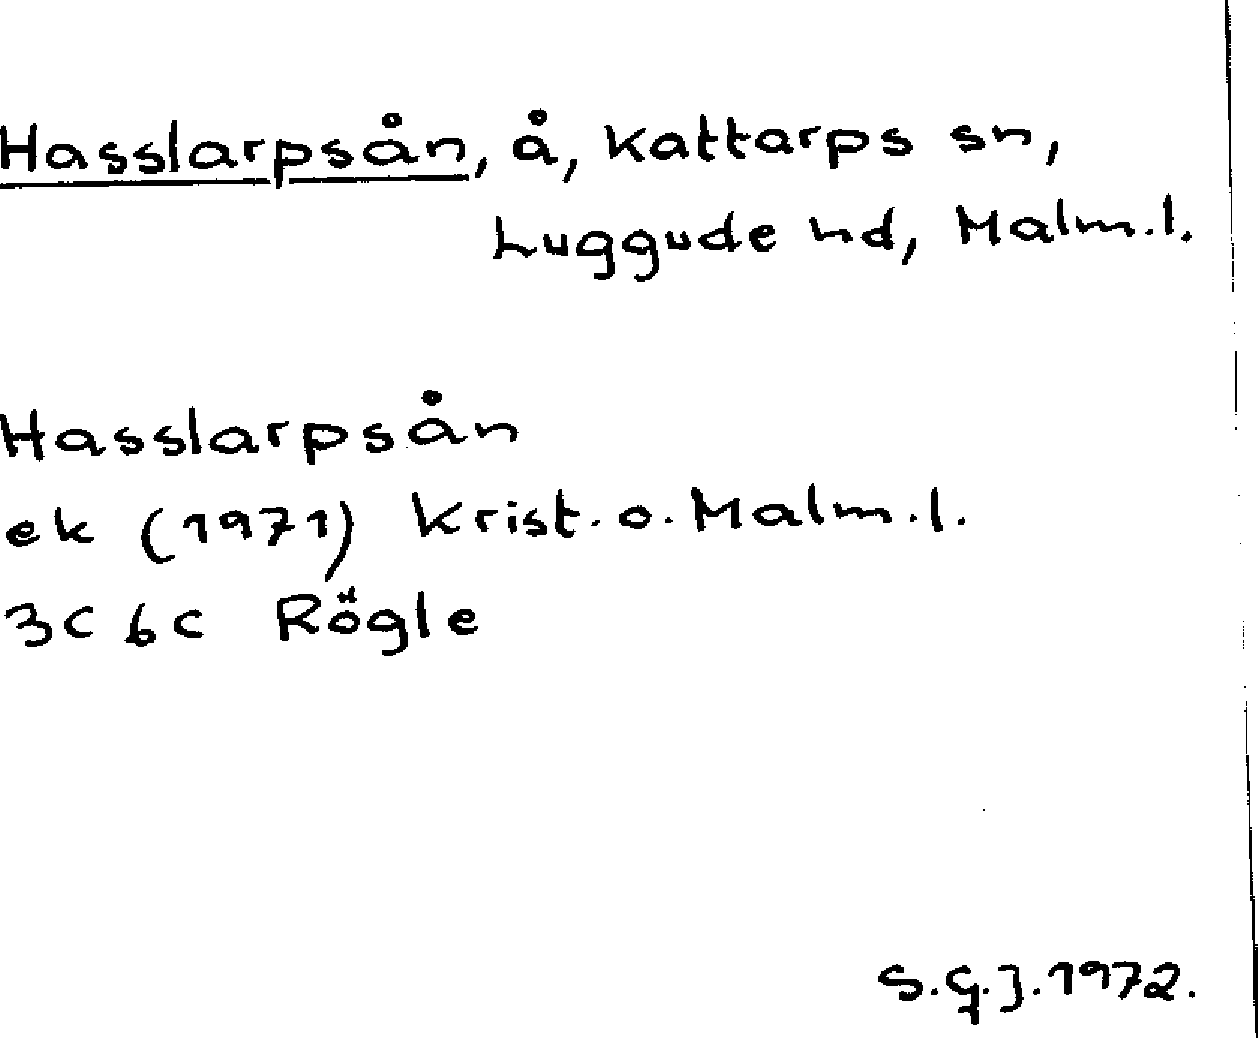 Hasslarpsån, å, Kattarps sn,
Luggude hd, Malm.l.
Hasslarpsån
ek (1971) Krist. o. Malm.l.
3C 6c Rögle
S.G.J. 1972.